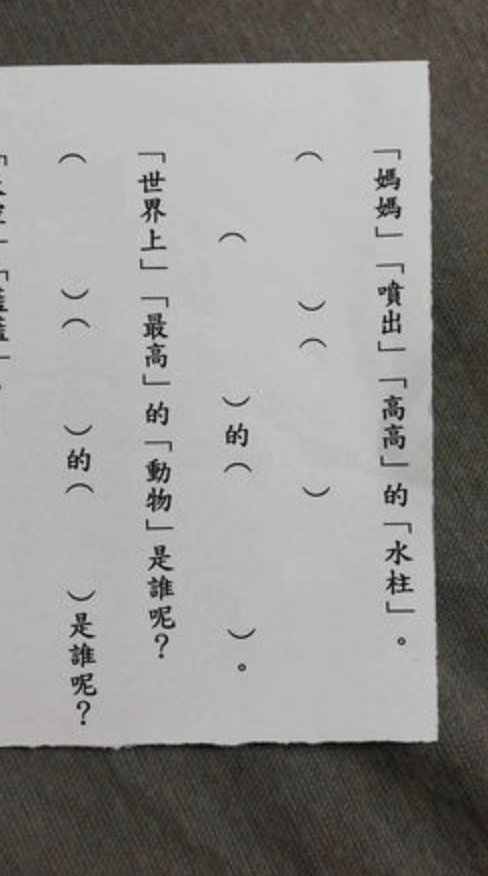 「媽媽」「噴出」「高高」的「水柱」。
（　　　）（　　　）
（　　　）的（　　　）。
「世界上」「最高」的「動物」是誰呢？
（　　　）（　　　）的（　　　）是誰呢？